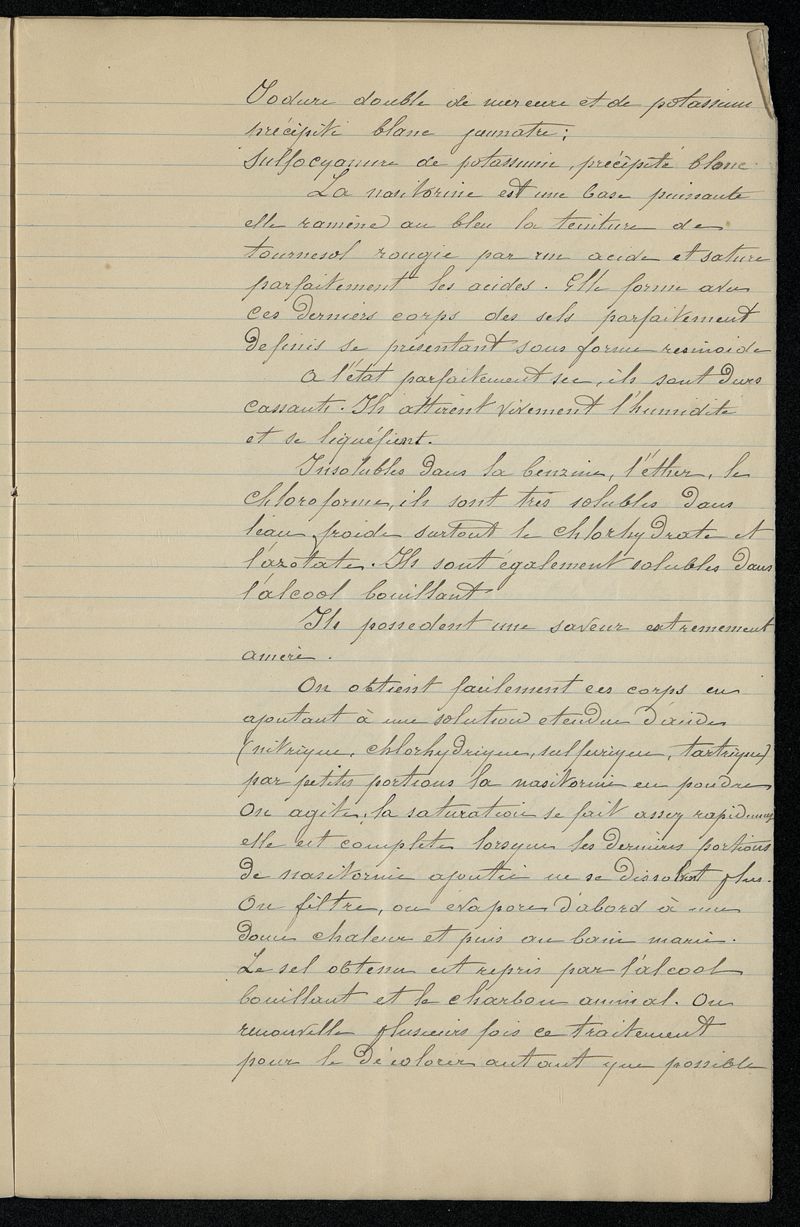 Iodure double de mercure et de potassium
précipité blanc jaunatre ;
Sulfocyanure de potassium, précipité blanc.
La nasitorine est une base puissante
elle ramène au bleu la teinture de
tournesol rougie par un acide et sature
parfaitement les acides. Elle forme avec
ces derniers corps des sels parfaitement
definis se présentant sous forme resinoide
A l'état parfaitement sec, ils sont durs
cassants. Ils attirent vivement l'humidite
et se liquéfient.
Insolubles dans la benzine, l'éther, le
chloroforme, ils sont très solubles dans
l'eau froide surtout le chlorhydrate et
l'azotate. Ils sont également solubles dans
l'alcool bouillant
Ils possedent une saveur extremement
amère.
On obtient facilement ces corps en
ajoutant à une solution etendue d'acide
(nitrique, chlorhydrique, sulfurique, tartrique)
par petites portions la nasitorine en poudre
On agite, la saturation se fait assez rapidement
elle est complète lorsque les dernières portions
de nasitorine ajoutée ne se dissolvent plus.
On filtre, on évapore d'abord à une
douce chaleur et puis au bain marie.
Le sel obtenu est repris par l'alcool
bouillant et le charbon animal. On
renouvelle plusieurs fois ce traitement
pour le décolorer autant que possible